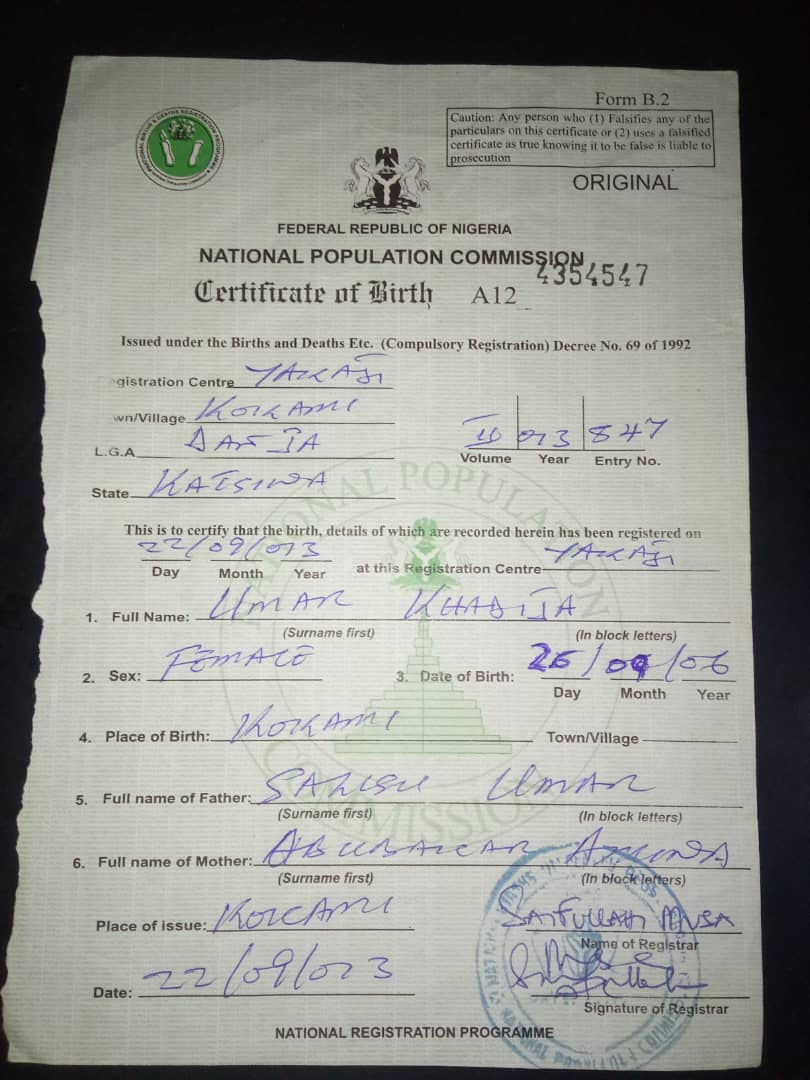 Form B.2
Caution: Any person who (1) Falsifies any of the
particulars on this certificate or (2) uses a falsified
certificate as true knowing it to be false is liable to
prosecution
ORIGINAL
FEDERAL REPUBLIC OF NIGERIA
NATIONAL POPULATION COMMISSION
4354547
Certificate of Birth A12
Issued under the Births and Deaths Etc. (Compulsory Registration) Decree No. 69 of 1992
gistration Centre YAKAJI
wn/Village KOKAMI
L.G.A DANJA
II 013 847
Volume Year Entry No.
State KATSINA
This is to certify that the birth, details of which are recorded herein has been registered on
22/09/013 at this Registration Centre YAKAJI
Day Month Year
1. Full Name: UMAR KHADIJA
(Surname first) (In block letters)
2. Sex: FEMALE 3. Date of Birth: 26/09/06
Day Month Year
4. Place of Birth: KOKAMI Town/Village
5. Full name of Father: SALISU UMAR
(Surname first) (In block letters)
6. Full name of Mother: ABUBAKAR AMINA
(Surname first) (In block letters)
Place of issue: KOKAMI SAIFULLAHI MUSA
Name of Registrar
Date: 22/09/013
Signature of Registrar
NATIONAL REGISTRATION PROGRAMME
NATIONAL POPULATION COMMISSION